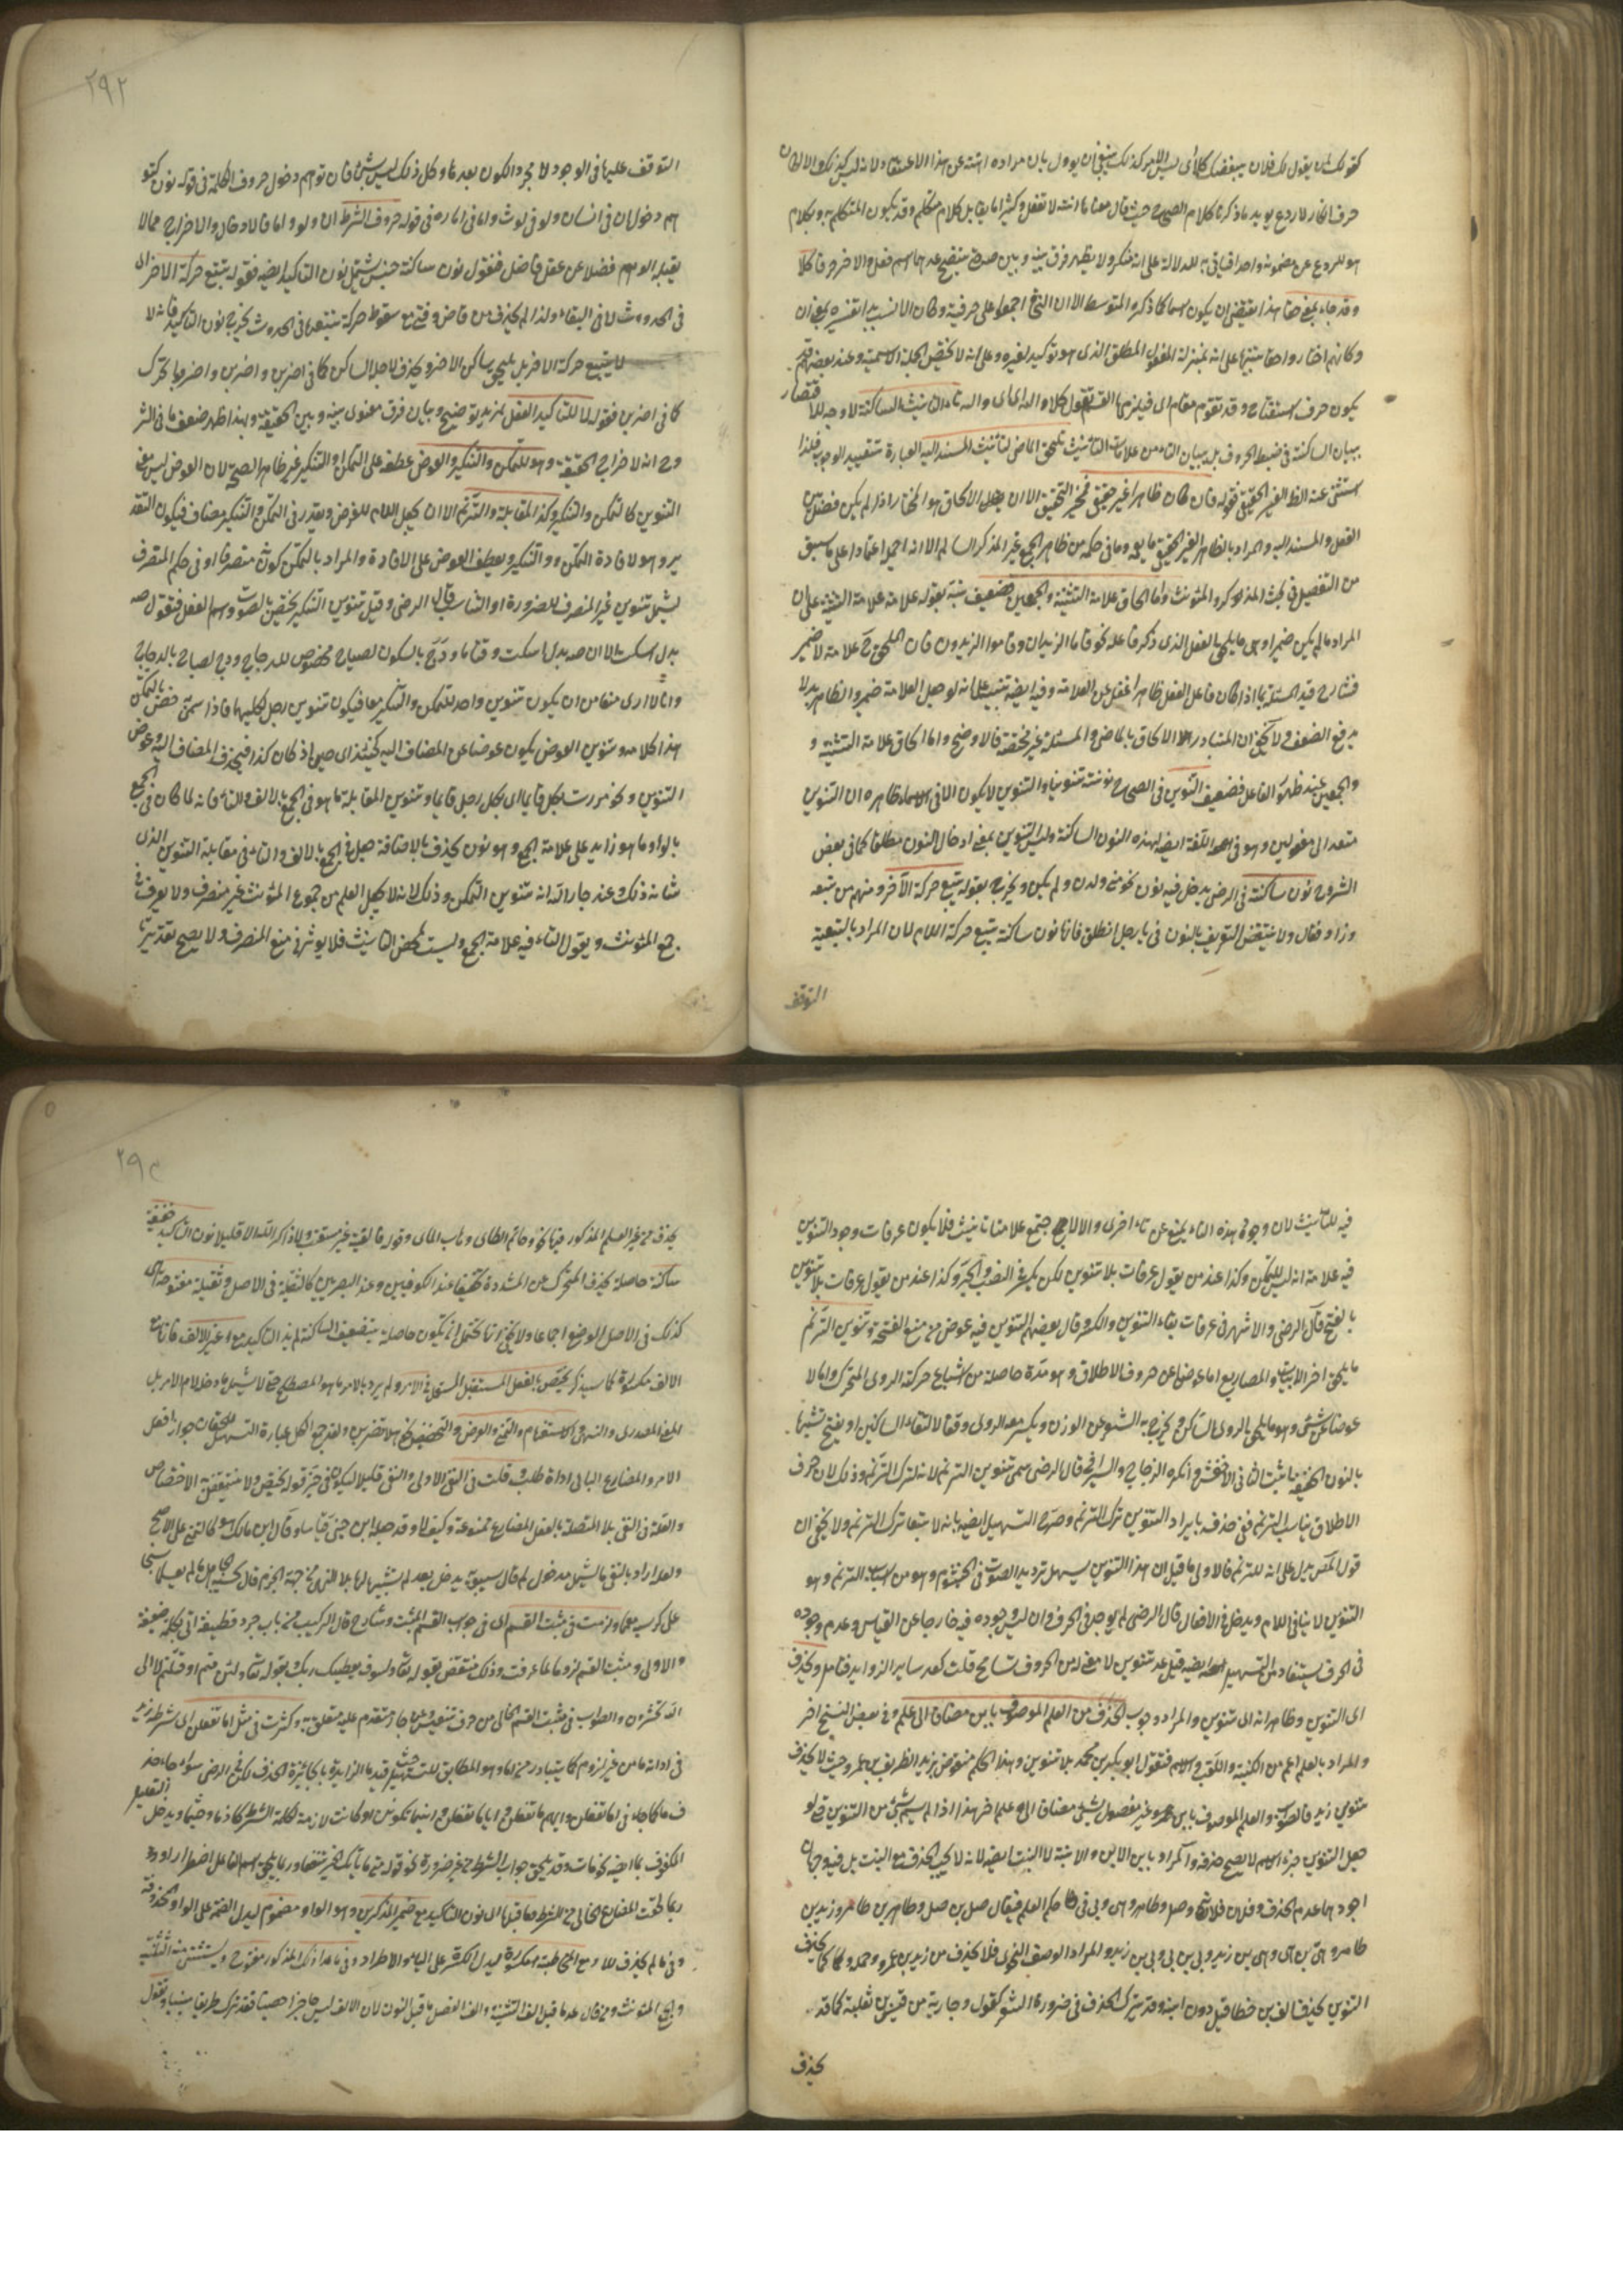 كقولك لمن يقول لك فلان يبغضك كلا أي ليس الامر كذلك ينبغي ان يوول بان مراده انته عن هذا الاعتقاد ولانه ليس كذلك والا لكان
حرف انكار لا ردع يويد ما ذكرنا كلام الصحاح حيث قال معناها انته لا تفعل وكثيرا ما يقابل كلام متكلم وقد يكون المتكلم به وبكلام
هو للردع عن مضمونه واحد
وقد جاء بمعنى حقا هذا يقتضي ان يكون اسما كما ذكره المتوسط الا ان النحاة اجمعوا على حرفيته وكان الانسب تفسيره بمعنى ان
وكانهم اختاروا حقا تنبيها على انه بمنزلة المفعول المطلق الذي هو توكيد لغيره وعلى انه لا يختص بالجملة الاسمية وعند بعضهم قد
يكون حرف استفتاح وقد تقوم مقام اي فيلزمها القسم تقول كلا والله اي اي والله تاء التانيث الساكنة لا وجه للاقتصار
ببيان الساكنة في ضبط الحروف بل ببيان التاء من علامات التانيث تلحق الماضي لتانيث المسند اليه العبارة
استثنى عنه الظاهر الغير الحقيقي بقوله فان كان ظاهرا غير حقيقي فمخير التحقيق الا ان الالحاق هو المختار اذا لم يكن فصل بين
الفعل والمسند اليه والمراد بالظاهر الغير الحقيقي ما يعمه وما في حكمه من ظاهر الجمع غير المذكر السالم الا انه اجمل اعتمادا على ما سبق
من التفصيل في بحث المذكر والمؤنث واما الحاق علامة التثنية والجمعين فضعيف نبه بقوله علامة علامة التثنية على ان
المراد ما لم يكن ضميرا وهي ما يلحق بالفعل الذي ذكر فاعله نحو قاما الزيدان وقاموا الزيدون فان الملحق ح علامة لا ضمير
فشارح قيد المسئلة بما اذا كان فاعل الفعل ظاهرا غفل عن العلامة وفيه ايضه تنبيه على انه لو جعل العلامة ضمير والظاهر بدلا
يدفع الضعف ولا يخفى ان المتبادر الالحاق بالماضي والمسئلة غير مختصة فالاوضح واما الحاق علامة التثنية و
والجمعين عند ظهور الفاعل فضعيف التنوين في الصحاح نونته تنوينا والتنوين لا يكون الا في الاسماء ظاهره ان التنوين
متعد الى مفعولين وهو في اللغة ايضه لهذه النون الساكنة وليس التنوين بمعنى ادخال النون مطلقا كما في بعض
الشروح نون ساكنة في الرضي يدخل فيه نون نحو من ولدن ولم يكن ويخرج بقوله تتبع حركة الآخر ومنهم من تبعه
وزاد فقال ولا ينتقض التعريف بالنون في يا رجل انطلق فانها نون ساكنة تتبع حركة اللام لان المراد بالتبعية
التوقف
٢٩٢
التوقف عليها في الوجود لا مجرد الكون بعدها وكل ذلك ليس بشيء فان توهم دخول حروف الكلمة في قوله نون كتو
هم دخول ان في انسان ولو في لوث واما في اماره في قوله حروف الشرط ان ولو واما فالادخال والاخراج مما لا
يقبله الوهم فضلا عن عقل فاضل فنقول نون ساكنة جنس يشمل نون التاكيد ايضه فقوله تتبع حركة الاخر اي
في الحدوث لا في البقاء ولذا لم يحذف من قاض وفتى مع سقوط حركة تتبعها في الحدوث يخرج نون التاكيد فانه لا
لا يتبع حركة الاخر بل يلحق ساكن الاخر ويحذف لاجلها الساكن كما في اضربن واضربن واضروبها تحرك
كما في اضربن فقوله لا لتاكيد الفعل لمزيد توضيح وبيان فرق معنوي بينه وبين الخفيفة وبهذا ظهر ضعف ما في الشر
وح انه لاخراج الخفيفة وهو للتمكن والتنكير والعوض عطفه على التمكن والتنكير غير ظاهر الصحة لان العوض ليس معنى
التنوين كالتمكن والتنكير وكذا المقابلة والترنم الا ان يجعل اللام للغرض ويقدر في التمكن والتنكير مضاف فيكون التقد
ير وهو لافادة التمكن والتنكير ويعطف العوض على الافادة والمراد بالتمكن كونه منصرفا او في حكم المنصرف
ليشمل تنوين غير المنصرف للضرورة او التناسب قال الرضي وقيل تنوين التنكير يختص بالصوت واسم الفعل فنقول صه
بدل اسكت الا ان صه بدل اسكت وقتا ما ودج بالسكون لصياح مخصوص للدجاج ودج لصياح بالدجاج
وانا لا ارى منعا من ان يكون تنوين واحد للتمكن والتنكير معا فيكون تنوين رجل لكليهما فاذا سمي خص بالتمكن
هذا كلامه وتنوين العوض يكون عوضا عن المضاف اليه كحينئذ اي حين اذ كان كذا فيحذف المضاف اليه وعوض
التنوين ونحو مررت بكل قايما اي بكل رجل قايما وتنوين المقابلة ما هو في الجمع بالالف والتاء فانه لما كان في الجمع
بالواو ما هو زايد على علامة الجمع وهو نون يحذف بالاضافة جعل في الجمع بالالف والتاء في مقابلة التنوين الذي
شانه ذلك وعند جار الله انه تنوين التمكن وذلك لانه لا يجعل العلم من جموع المؤنث غير منصرف ولا يعرف تا
جمع المؤنث ويقول التاء فيه علامة الجمع وليست لمحض التانيث فلا يوثر في منع الصرف ولا يصح تقديرها
فيه للتانيث لان وجود هذه التاء يمنع عن تاء اخرى والا لاجتمع علامتا تانيث فلا يكون عرفات وجود التنوين
فيه علامة انه ليس للتمكن وكذا عند من يقول عرفات بلا تنوين لكن يكسر في النصب والجر وكذا عند من يقول عرفات بلا تنوين
بالفتح قال الرضي والاشهر في عرفات بقاء التنوين والكسر وقال بعضهم التنوين فيه عوض من منع الفتحة وتنوين الترنم
ما يلحق اخر الابيات والمصاريع اما عوضا عن حروف الاطلاق وهو مدة حاصلة من اشباع حركة الروي المتحرك واما لا
عوضا عن شيء وهو ما يلحق بالروي الساكن ويخرج به الشعر عن الوزن ويكسر معه الروي وقفا لالتقاء الساكنين او يفتح تشبيها
بالنون الخفيفة اثبت الثاني الاخفش وانكره الزجاج والسيرافي قال الرضي سمي تنوين الترنم لانه لترك الترنم وذلك لان حرف
الاطلاق يناسب الترنم ففي حذفه بايراد التنوين ترك الترنم وصرح التسهيل ايضه بانه لا متعا ترك الترنم ولا يخفى ان
قول المص يدل على انه للترنم فالاولى ما قيل ان هذا التنوين يسهل ترديد الصوت في الخيشوم وهو من اسباب الترنم وهو
التنوين لا ينافي اللام ويدخل في الافعال قال الرضي لم يوجد في الحرف وان ليس وجوده فيه خارجا عن القياس وعدم وجوده
في الحرف يستفاد من التسهيل ايضه قيل عد تنوين لا معنى له من الحروف تسامح قلت كعد ساير الزوايد فتامل ويحذف
اي التنوين وظاهره انه اي تنوين والمراد وجوب الحذف من العلم الموصوف بابن مضاف الى علم وفي بعض النسخ اخر
والمراد بالعلم اعم من الكنية واللقب والاسم فتقول ابو بكر بن محمد بلا تنوين وهذا الحكم منقوض بزيد الظريف بن عمرو حيث لا يحذف
تنوين زيد فالصواب والعلم الموصوف بابن غير مفصول بشيء مضاف الى علم اخر هذا اذا لم يسم بشيء من التنوين فلو
جعل التنوين جزء الاسم لا يصح حذفه واراد بابن الابن والابنة لا البنت ايضه لانه لا يجب الحذف مع البنت بل فيه وجهان
اجودهما عدم الحذف وفلان فلان وصل وطامر وهي وبي في حكم العلم فيقال صل بن صل وطامر بن طامر وزيد بن
طامر وهي بن هي وهي بن زيد وبي بن بي وبي بن زيد والمراد الوصف النحوي فلا يحذف من زيد بن عمرو وحمله وكما يحذف
التنوين يحذف الف ابن خطا قيل دون ابنة وقد يترك الحذف في ضرورة الشعر كقول وجارية من قيس بن ثعلبة كما قد
يحذف
٢٩٣
يحذف من غير العلم المذكور فيما نحو وحاتم الطائي وهاب المائي وقوله فالفيته غير مستعتب ولا ذاكر الله الا قليلا نون التاكيد خفيفة
ساكنة حاصلة بحذف المتحرك من المشددة تخفيفا عند الكوفيين وعند البصريين كالثقيلة في الاصل وثقيلة مفتوحة اي
كذلك في الاصل الوضع اجماعا ولا يخفى انها تحتمل ان تكون حاصلة بتضعيف الساكنة لمزيد التاكيد مع غير الالف فانها مع
الالف مكسورة كما سيذكر يختص بالفعل المستقبل المستعمل في الامر ولم يرد بالامر ما هو المصطلح حتى لا يشمل ما دخل لام الامر بل
المعنى المصدري والنهي والاستفهام والتمني والعرض والتحضيض نحو هلا تضربن ويندرج الكل عبارة التسهيل تلحقان جوازا فعل
الامر والمضارع التالي اداة طلب وقلت في النفي الاولى والنفي قليلا ليكون في حيز قوله يختص ولا ينتقض الاختصاص
والقلة في النفي بلا المتصلة بالفعل المضارع ممنوعة وكيف لا وقد جعله ابن جني قياسا وقال ابن مالك هو كالنهي على الاصح
ولعله اراد بالنفي ما يشمل مدخول لم قال سيبويه يدخل بعد لم تشبيها لها بلا النهي من جهة الجزم قال يحسبه الجاهل ما لم يعلما شيخا
على كرسيه معمما ولزمت في مثبت القسم اي في جواب القسم المثبت وشارح قال التركيب من باب جرد قطيفة اتى بكلمة ضعيفة
والاولى ومثبت القسم لزوما لما عرفت وذلك منتقض بقوله تعالى ولسوف يعطيك ربك وبقوله تعالى ولئن متم او قتلتم لالى
الله تحشرون والصواب في مثبت القسم الخالي من حرف تنفيس وعن جار متقدم عليه متعلق به وكثرت في مثل اما تفعلن اي بشرط زيد
في اداته ما من غير لزوم كما يتبادر من اما وهو المطابق للتسهيل حيث قيد ما الزايدة بالجائزة الحذف لكن في الرضي سواء جاء حذ
ف ما كما جاء في اما تفعلن وايهم ما تفعلن واياما تفعلن واينما تكونن او كانت لازمة لكلمة الشرط كاذما وحيثما ويدخل
المكفوف بما ايضه نحو مات وقد يلحق جواب الشرط من غير ضرورة نحو قوله متى ما ياتك الخير ينفعا وربما يلحق اسم الفاعل اضطرارا ود
ربما لحقت المضارع الخالي من الشرط وما قبلها اي نون التاكيد مع ضمير المذكرين وهو الواو مضموم ليدل الضمة على الواو المحذوفة
وفي ما لم يحذف للا ومع المخاطبة مكسورة ليدل الكسرة على الياء والاطراد وفي ما عدا ذلك المذكور مفتوح ويستثنى منه التثنية
وجمع المؤنث ومن قال عد ما قبل الف التثنية والف الفصل ما قبل النون لان الالف ليس حاجزا حصينا فقد ترك طريقا مبينا وتقول